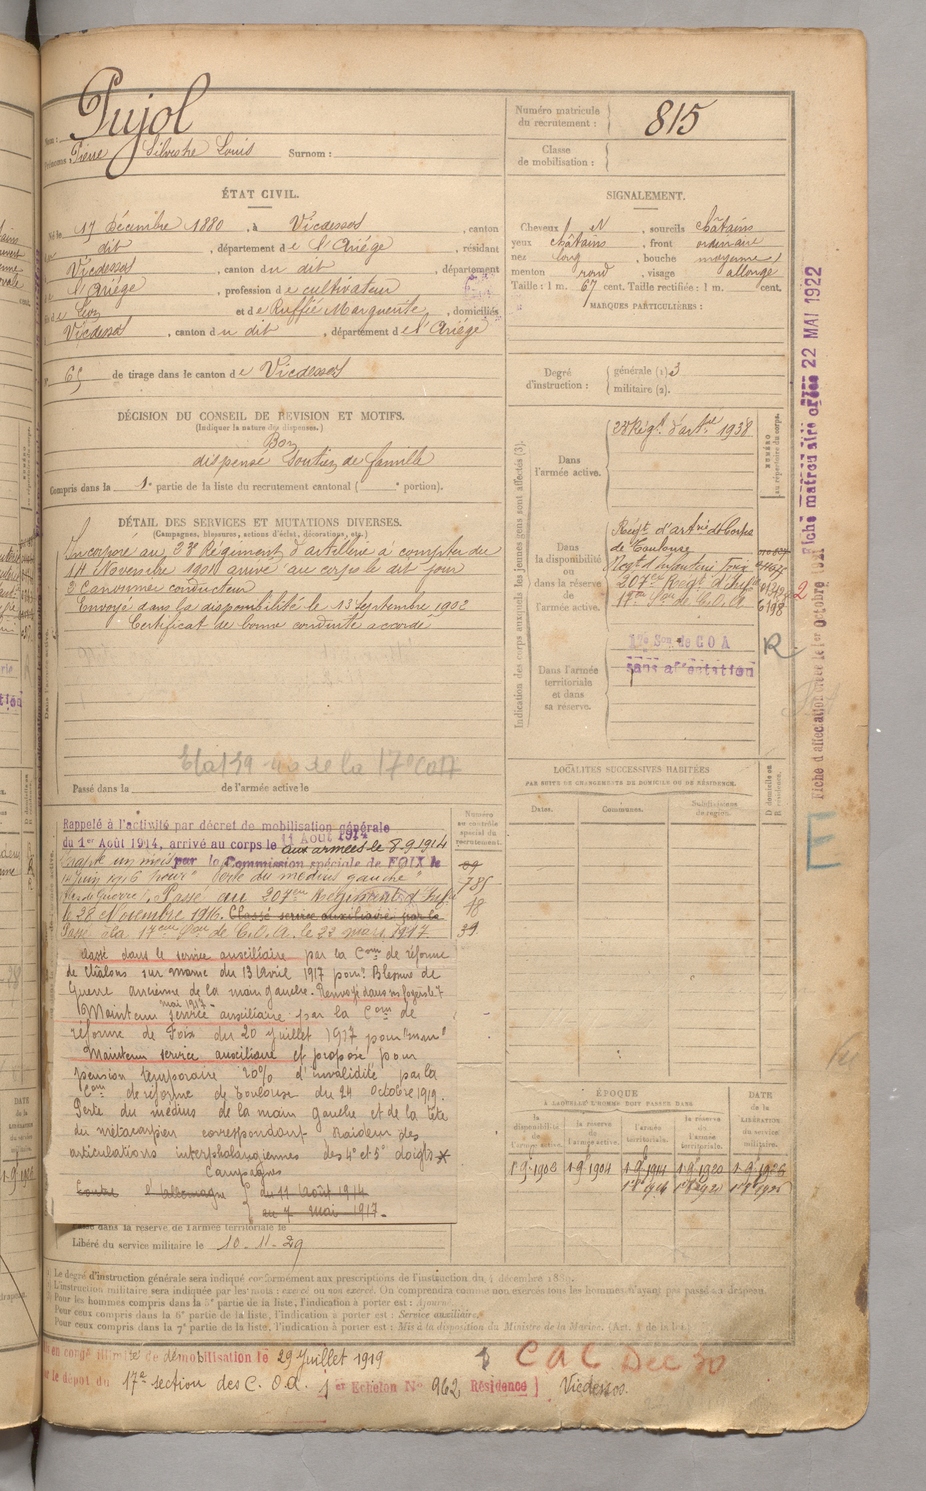 Pujol
Nom :
Prénoms : Pierre Silvestre Louis Surnom :
Numéro matricule du recrutement : 815
Classe de mobilisation :
ÉTAT CIVIL.
Né le 17 Décembre 1880, à Vicdessos, canton
dudit, département de l'Ariége, résidant
Vicdessos, canton du dit, département
l'Ariége, profession de cultivateur
de Léon et de Ruffié Marguerite, domiciliés
Vicdessos, canton du dit, département de l'Ariége
N° 65 de tirage dans le canton de Vicdessos
SIGNALEMENT.
Cheveux N, sourcils châtains
yeux châtains, front ordinaire
nez long, bouche moyenne
menton rond, visage allongé
Taille : 1 m. 67 cent. Taille rectifiée : 1 m. cent.
MARQUES PARTICULIÈRES :
Degré d'instruction : générale (1) 3
militaire (2).
DÉCISION DU CONSEIL DE REVISION ET MOTIFS.
(Indiquer la nature des dispenses.)
Bon
dispensé Soutien de famille
Compris dans la 1e partie de la liste du recrutement cantonal ( e portion).
DÉTAIL DES SERVICES ET MUTATIONS DIVERSES.
(Campagnes, blessures, actions d'éclat, décorations, etc.)
Incorporé au 23e Régiment d'artillerie à compter du
14 Novembre 1901 arrivé au corps le dit jour
2e Canonnier conducteur
Envoyé dans la disponibilité le 13 Septembre 1902
Certificat de bonne conduite accordé
de la 17e
Passé dans la de l'armée active le
Indication des corps auxquels les jeunes gens sont affectés (3).
Dans l'armée active.
23e Régt d'artie 1938
NUMÉRO au répertoire du corps.
Dans la disponibilité ou dans la réserve de l'armée active.
Regt d'artie
de Toulouse
Regt d'infanterie Foix
207e Regt d'Infie
17e Son de C.O.A.
6198
2
17e Son de COA
sans affectation
R
Dans l'armée territoriale et dans sa réserve.
Fiche matriculaire créée 22 MAI 1922
Fiche d'affectation créée le 1er Octobre
LOCALITÉS SUCCESSIVES HABITÉES
PAR SUITE DE CHANGEMENTS DE DOMICILE OU DE RÉSIDENCE.
Dates. Communes. Subdivisions de région. D domicile ou R résidence.
E
Numéro au contrôle spécial du recrutement.
785
48
39
Rappelé à l'activité par décret de mobilisation générale
du 1er Août 1914, arrivé au corps le 11 Août 1914 aux armées le 8-9-1914
un mois par la Commission spéciale de FOIX le
Juin 1916 pour "perte du médius gauche"
Passé au 207eme Régiment d'Inf.
le 28 Novembre 1916. Classé service auxiliaire par la
Passé à la 17eme Son de C.O.A. le 22 mars 1917.
Classé dans le service auxiliaire par la Com de réforme
de Châlons sur marne du 13 Avril 1917 pour : Blessure de
Guerre ancienne de la main gauche. Renvoyé dans ses foyers le 7
mai 1917.
Maintenu service auxiliaire par la Com de
réforme de Foix du 20 Juillet 1917 pour "
Maintenu service auxiliaire et proposé pour
pension temporaire 20% d'invalidité par la
Com de réforme de Toulouse du 24 Octobre 1919.
Perte du médius de la main gauche et de la tête
du métacarpien correspondant Raideur des
articulations interphalangiennes des 4e et 5e doigts *
Campagnes
Contre l'allemagne du 11 Août 1914
au 7 mai 1917.
Passé dans la réserve de l'armée territoriale le
Libéré du service militaire le 10-11-29
ÉPOQUE
À LAQUELLE L'HOMME DOIT PASSER DANS
la disponibilité de l'armée active. la réserve de l'armée active. l'armée territoriale. la réserve de l'armée territoriale. DATE de la LIBÉRATION du service militaire.
1-9-1902 1-9-1904 1-9-1914 1-9-1920 1-9-1926
(1) Le degré d'instruction générale sera indiqué conformément aux prescriptions de l'instruction du 4 décembre 1889.
L'instruction militaire sera indiquée par les mots : exercé ou non exercé. On comprendra comme non exercés tous les hommes n'ayant pas passé au drapeau.
Pour les hommes compris dans la 5e partie de la liste, l'indication à porter est : Ajourné.
Pour ceux compris dans la 6e partie de la liste, l'indication à porter est : Service auxiliaire.
Pour ceux compris dans la 7e partie de la liste, l'indication à porter est : Mis à la disposition du Ministre de la Marine.
en congé illimité de démobilisation le 29 Juillet 1919
C a C Dec 30
le dépôt du 17e section des C.O.A. 1er Echelon N° 962 Résidence ) Vicdessos.